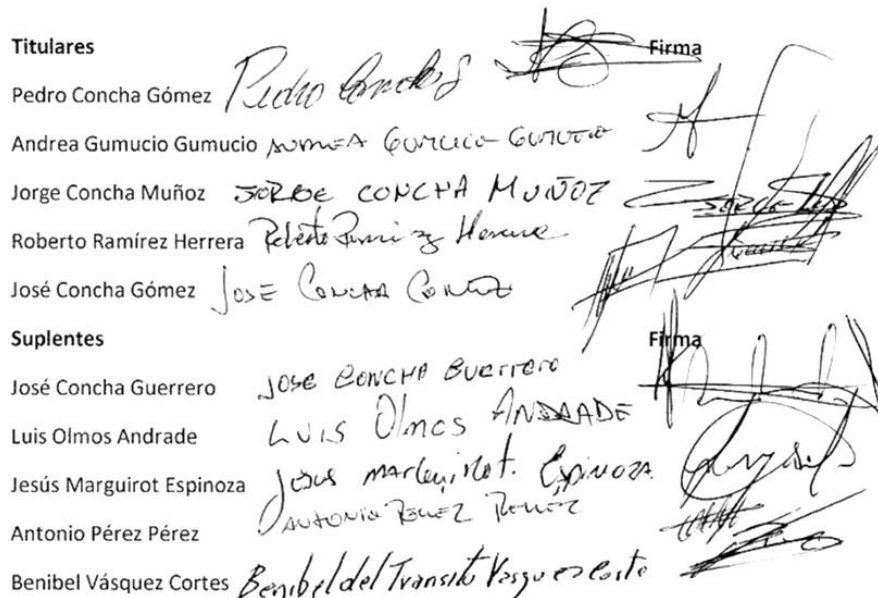 Titulares Firma
Pedro Concha Gómez Pedro Concha G
Andrea Gumucio Gumucio ANDREA GUMUCIO GUMUCIO
Jorge Concha Muñoz JORGE CONCHA MUÑOZ
Roberto Ramírez Herrera Roberto Ramirez Herrera
José Concha Gómez JOSE CONCHA GOMEZ
Suplentes Firma
José Concha Guerrero JOSE CONCHA GUERRERO
Luis Olmos Andrade LUIS Olmos ANDRADE
Jesús Marguirot Espinoza Jesus marguirot. Espinoza
Antonio Pérez Pérez ANTONIO PEREZ PEREZ
Benibel Vásquez Cortes Benibel del Transito Vasquez Corte